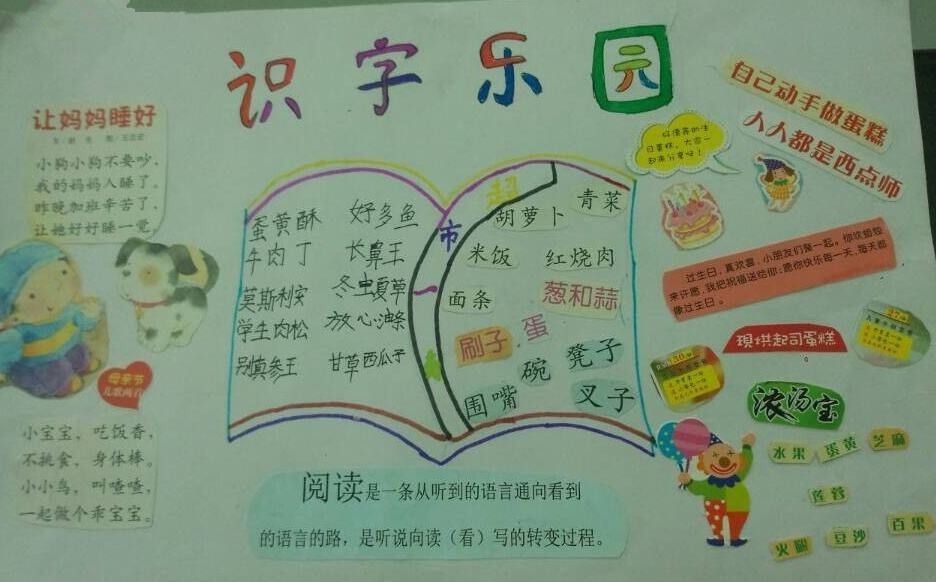 识字乐园
让妈妈睡好
小狗小狗不要吵，
我的妈妈入睡了。
昨晚加班辛苦了，
让她好好睡一觉。
母亲节
儿歌两首
小宝宝，吃饭香，
不挑食，身体棒。
小小鸟，叫喳喳，
一起做个乖宝宝。
蛋黄酥
好多鱼
牛肉丁
长鼻王
莫斯利安
冬虫夏草
学生肉松
放心油条
别慎参王
甘草西瓜子
超
市
一
胡萝卜
青菜
米饭
红烧肉
面条
葱和蒜
刷子
蛋
碗
凳子
围嘴
叉子
阅读是一条从听到的语言通向看到
的语言的路，是听说向读（看）写的转变过程。
自己动手做蛋糕
人人都是西点师
好漂亮的生
日蛋糕，大家一
起来分享吧！
过生日，真欢喜，小朋友们聚一起。你吹蜡烛
来许愿，我把祝福送给你：愿你快乐每一天，每天都
像过生日。
現烘起司蛋糕
浓汤宝
水果
蛋黄
芝麻
莲蓉
火腿
豆沙
百果